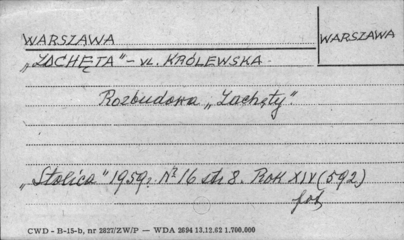 WARSZAWA
WARSZAWA
"ZACHĘTA" - ul. KRÓLEWSKA
Rozbudowa „Zachęty".
„Stolica" 1959r. Nr 16 str 8. Rok XIV (592)
fot.
CWD - B-15-b, nr 2827/ZW/P — WDA 2694 13.12.62 1.700.000